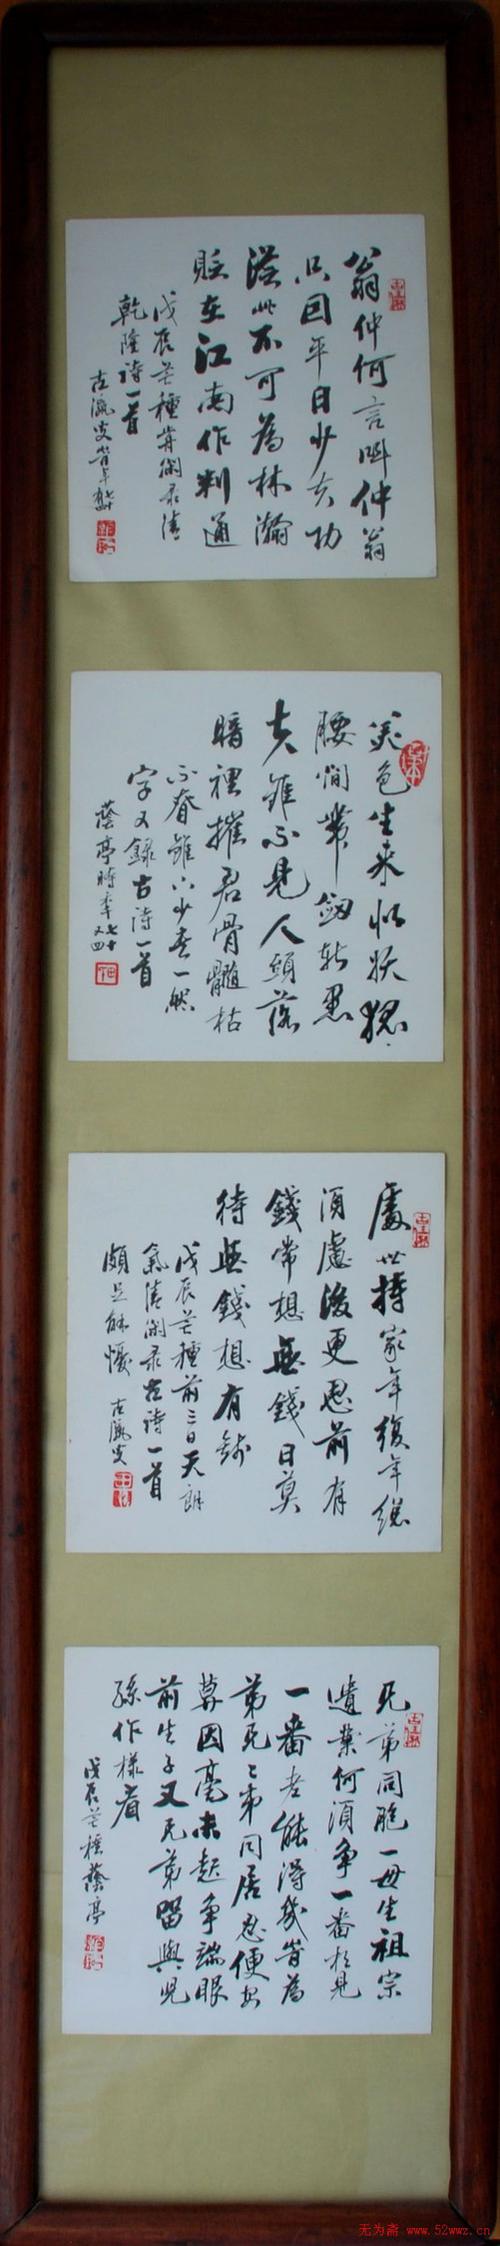 翁仲何言叫仲翁
只因平日少夫功
從此不可為林瀚
貶在江南作判通
戊辰芒種前閑录清
乾隆詩一首
古瀛叟
美色生來似妖狐
腰間帶劔斬愚
夫雖不見人頭落
暗裡摧君骨髓枯
不眷雖六少去一然
字又録古詩一首
蔭亭時年七十又四
處世持家年復年總
須慮後更思前有
錢常想無錢日莫
待無錢想有錢
戊辰芒種前三日天朗
氣清閑录古詩一首
頗足解懮
古瀛叟
兄弟同胞一母生祖宗
遺業何須爭一番相見
一番老能得幾時為
弟兄兄弟同居忍便安
莫因毫末起爭端眼
前生子又兄弟留與兒
孫作樣看
戊辰芒種蔭亭
无为斋 www.52wwz.cn